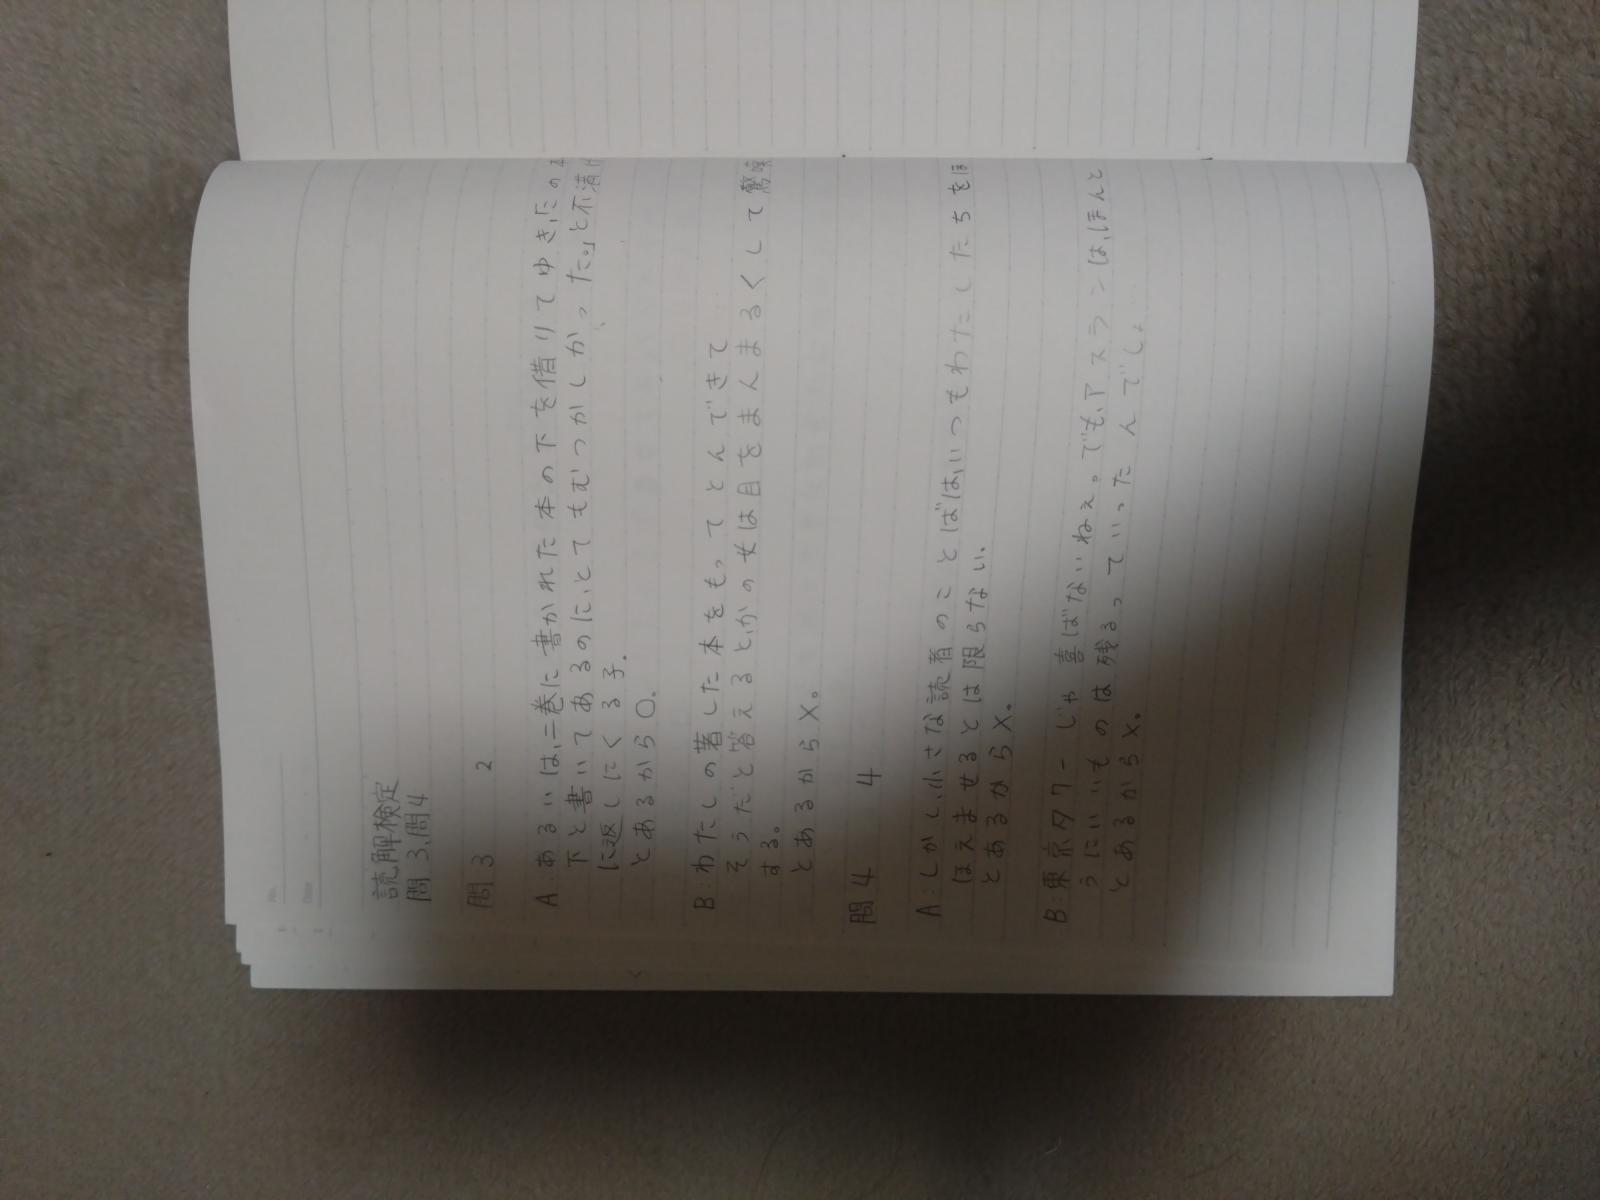 No.
Date
読解検定
問3、問4
問3 2
A:あるいは、二巻に書かれた本の下を借りてゆき、「この
下と書いてあるのに、とてもむつかしかった。」と不満げ
に返しにくる子.
とあるから○。
B:わたしの著した本をもってとんできて
そうだと答えると、かの女は目をまんまるくして驚嘆
する。
とあるから×。
問4 4
A:しかし、小さな読者のことばは、いつもわたしたちをほ
ほえませるとは限らない。
とあるから×。
B:東京タワーじゃ喜ばないねえ。でも、アスランは、ほんと
うにいいものは残るっていったんでし。
とあるから×。